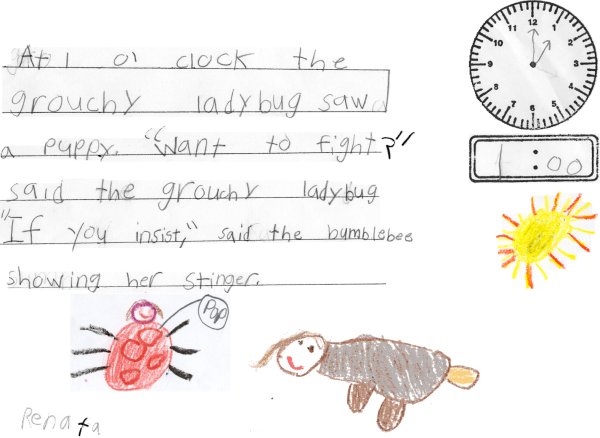 At 1 o' clock the
grouchy ladybug saw
a puppy. "Want to fight?"
said the grouchy ladybug
"If you insist," said the bumblebee
showing her stinger.
12
1
2
3
4
5
6
7
8
9
10
11
1:00
Pop
Renata